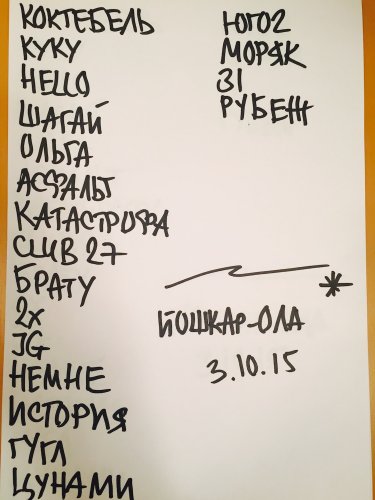 КОКТЕБЕЛЬ
КУКУ
HELLO
ШАГАЙ
ОЛЬГА
АСФАЛЬТ
КАТАСТРОФА
СШВ 27
БРАТУ
2х
JG
НЕМНЕ
ИСТОРИЯ
ГУГЛ
ЦУНАМИ
ЮГ02
МОРЯК
31
РУБЕЖ
ЙОШКАР-ОЛА
3.10.15